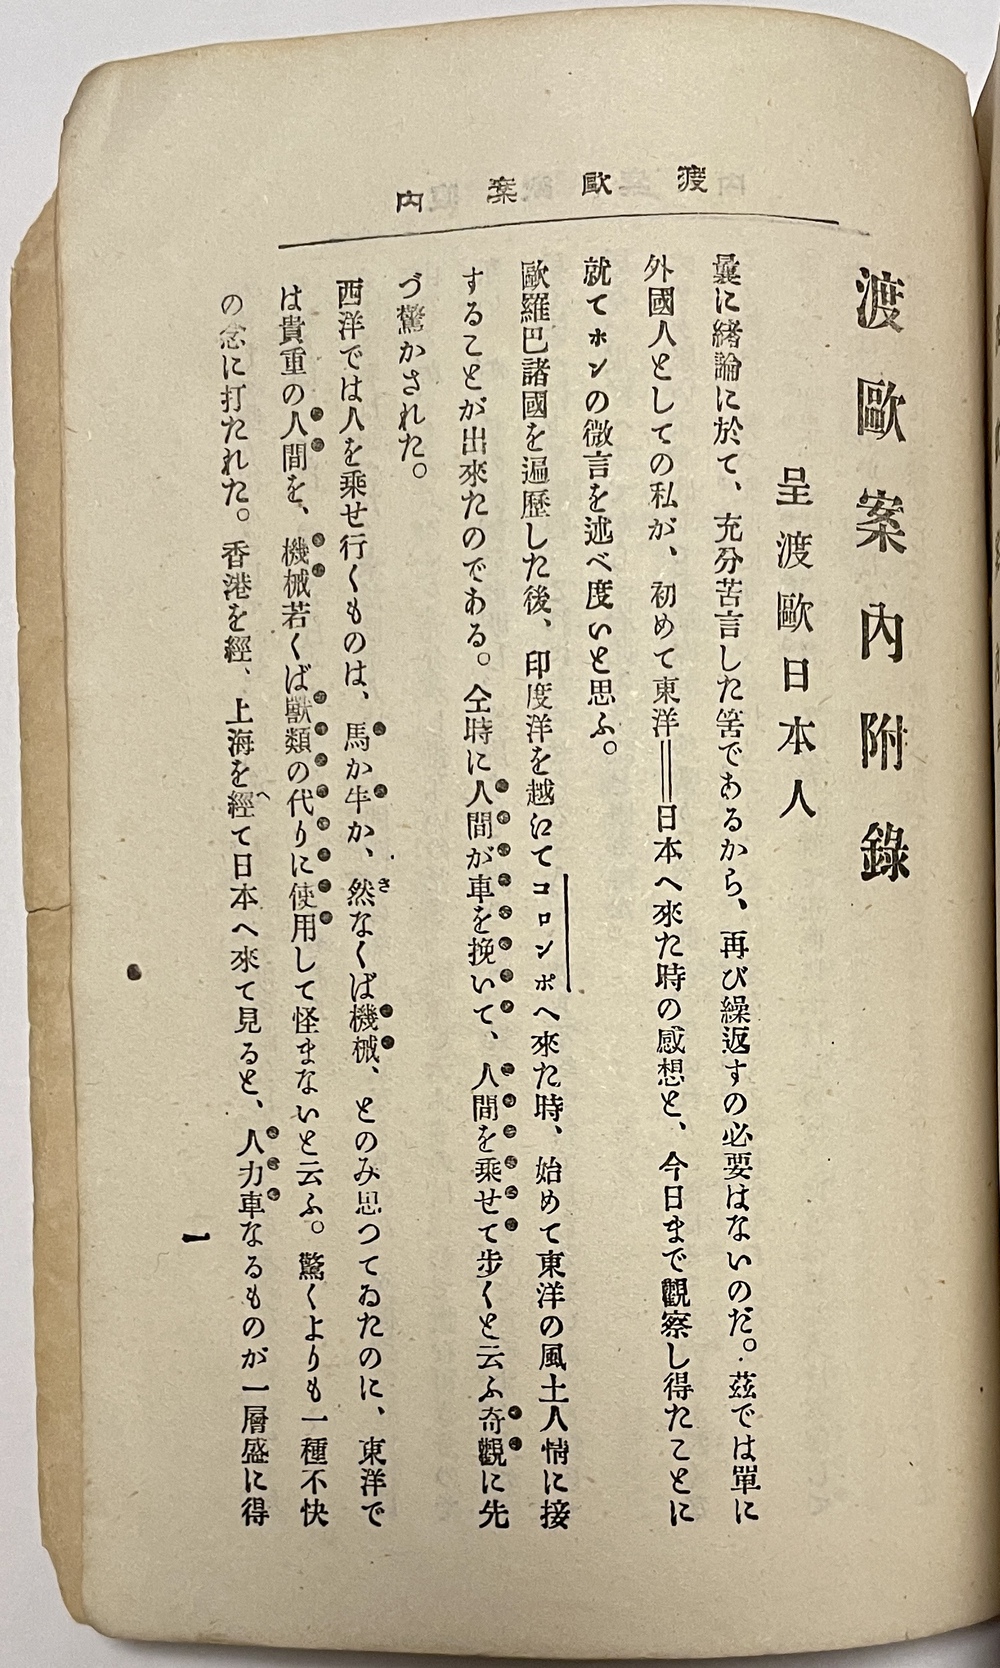 渡歐案內
渡歐案內附錄
呈渡歐日本人
曩に緖論に於て、充分苦言した筈であるから、再び繰返すの必要はないのだ。茲では單に
外國人としての私が、初めて東洋‖日本へ來た時の感想と、今日まで觀察し得たことに
就てホンの微言を述べ度いと思ふ。
歐羅巴諸國を遍歷した後、印度洋を越にてコロンボへ來た時、始めて東洋の風土人情に接
することが出來たのである。仝時に人間が車を挽いて、人間を乘せて步くと云ふ奇觀に先
づ驚かされた。
西洋では人を乘せ行くものは、馬か牛か、然なくば機械、とのみ思つてゐたのに、東洋で
は貴重の人間を、機械若くば獸類の代りに使用して怪まないと云ふ。驚くよりも一種不快
の念に打たれた。香港を經、上海を經て日本へ來て見ると、人力車なるものが一層盛に得
一